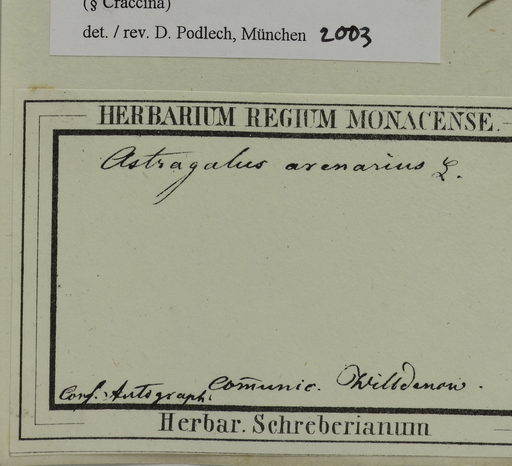 (§ Craccina)
det. / rev. D. Podlech, München 2003
HERBARIUM REGIUM MONACENSE.
Astragalus arenarius L.
Conf. Autograph. com̄unic. Willdenow.
Herbar. Schreberianum